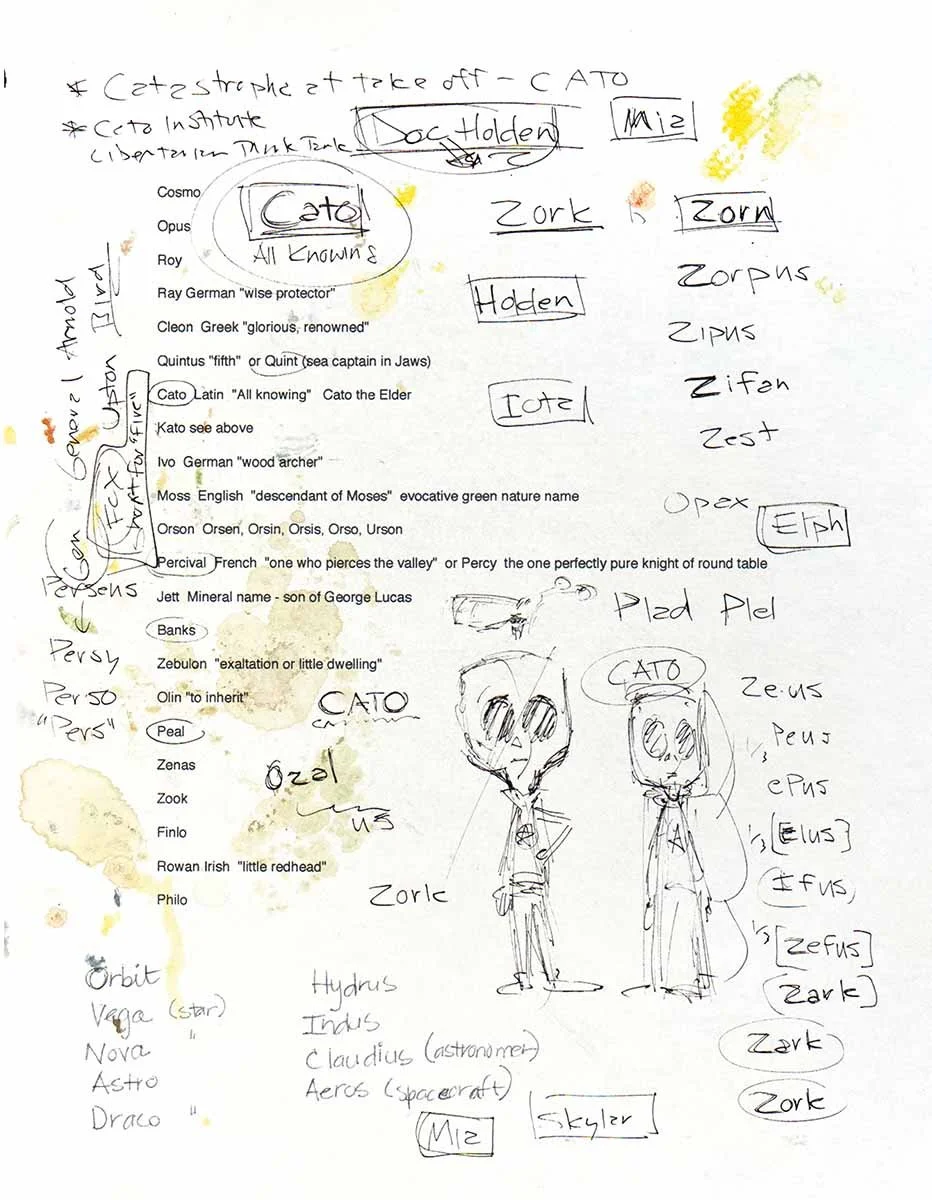 * Catastrophe at take off - CATO
* Cato Institute
Libertarian Think Tank
Doc Holden
Mia
Cosmo
Opus
Roy
Ray German "wise protector"
Cleon Greek "glorious, renowned"
Quintus "fifth" or Quint (sea captain in Jaws)
Cato Latin "All knowing" Cato the Elder
Kato see above
Ivo German "wood archer"
Moss English "descendant of Moses" evocative green nature name
Orson Orsen, Orsin, Orsis, Orso, Urson
Percival French "one who pierces the valley" or Percy the one perfectly pure knight of round table
Jett Mineral name - son of George Lucas
Banks
Zebulon "exaltation or little dwelling"
Olin "to inherit"
Peal
Zenas
Zook
Finlo
Rowan Irish "little redhead"
Philo
Cato
All Knowing
Zork
Zorn
Holden
Zorpus
Zipus
Iota
Zifan
Zest
Opax
Elph
Plad Plel
Gen General Arnold
Bird
Short for "Five"
Persens
Persy
Perso
"Pers"
CATO
Ozal
us
Zork
CATO
A
A
Zeus
1/3 Peus
ePus
1/3 [Elus]
Ifus
1/3 [Zefus]
[Zark]
Zark
Zork
Orbit
Vega (star)
Nova "
Astro
Draco "
Hydrus
Indus
Claudius (astronomer)
Aeros (spacecraft)
Mia
Skylar